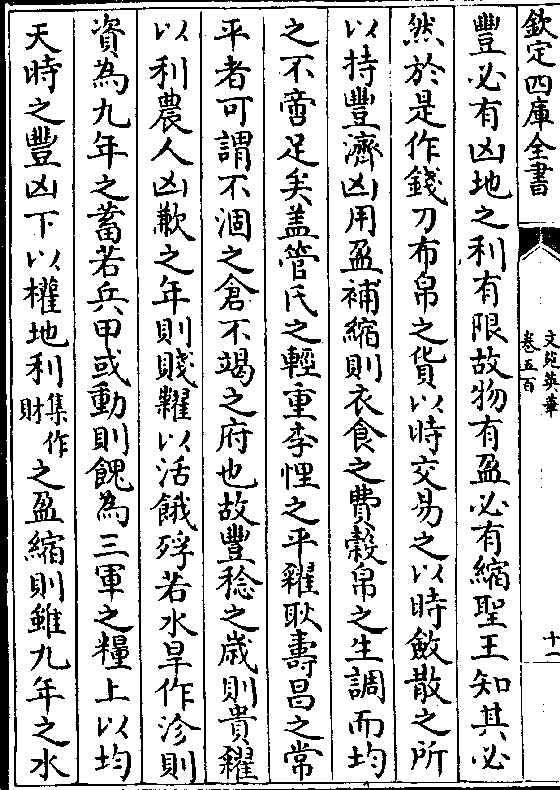 欽定四庫全書
文苑英華
卷五百
十一
豐必有凶地之利有限故物有盈必有縮聖王知其必
然於是作錢刀布帛之貨以時交易之以時斂散之所
以持豐濟凶用盈補縮則衣食之費榖帛之生調而均
之不啻足矣盖管氏之輕重李悝之平糴耿壽昌之常
平者可謂不涸之倉不竭之府也故豐稔之歲則貴糴
以利農人凶歉之年則賤糶以活餓殍若水旱作沴則
資為九年之蓄若兵甲或動則餽為三軍之糧上以均
天時之豐凶下以權地利集作財之盈縮則雖九年之水